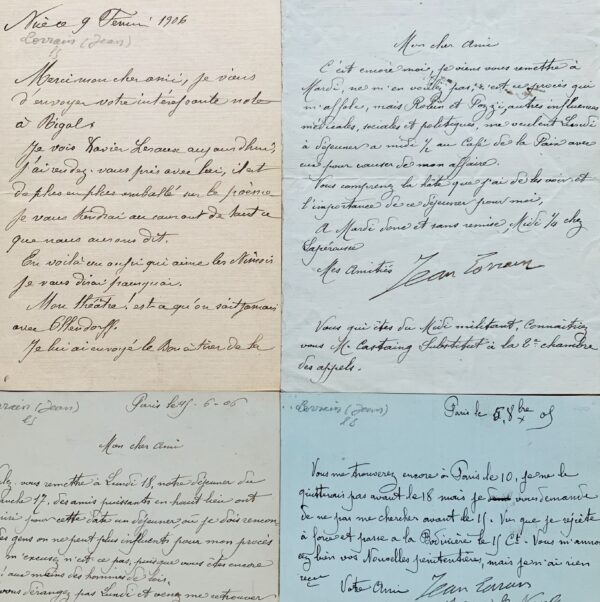 Nice 9 Février 1906
Lorrain (Jean)
Merci mon cher ami, je viens
d'envoyer votre intéressante note
à Rigal.
Je vois Xavier Leroux aujourd'hui,
j'ai rendez-vous pris avec lui, il est
de plus en plus emballé sur le poème
je vous tiendrai au courant de tout ce
que nous aurons dit.
En voilà un enfin qui aime les
Je vous dirai pourquoi.
Mon théâtre! est-ce qu'on sait jamais
avec Ollendorff.
Je lui ai envoyé le Bon à tirer de la
Mon cher Ami
C'est encore moi, je viens vous remettre à
Mardi, ne m'en veuillez pas, c'est ce procès qui
m'affole, mais Robin et Pozzi, autres influences
médicales, sociales et politiques, me veulent Lundi
à déjeuner à midi ½ au Café de la Paix avec
eux pour causer de mon affaire.
Vous comprenez la hâte que j'ai de les voir et
l'importance de ce déjeuner pour moi,
A Mardi donc et sans remise Midi ½ chez
Lapérouse
Mes Amitiés Jean Lorrain
Vous qui êtes du Midi militant, connaitriez
vous M. Castaing Substitut à la 2e chambre
des appels.
Lorrain (Jean)
Paris le 15-6-06
Mon cher Ami
vous remettre à Lundi 18, notre déjeuner du
manche 17, des amis puissants en haut lieu ont
pour cette date un déjeuner où je dois rencon
gens on ne peut plus influents pour mon procès
m'excusez n'est ce pas, puisque vous êtes encore
aux mains des hommes de loi.
vous dérangez pas Lundi et venez me retrouver
Lorrain (Jean)
Paris le 5, 8bre 05
Vous me trouverez encore à Paris le 10, je ne le
quitterais pas avant le 18 mais je vous demande
de ne pas me chercher avant le 15. Vu que je répète
à force et passe à la Bodinière le 15 Ct. Vous m'annon
cez bien vos Nouvelles pénitentières, mais je n'ai rien
reçu
Votre Ami Jean Lorrain